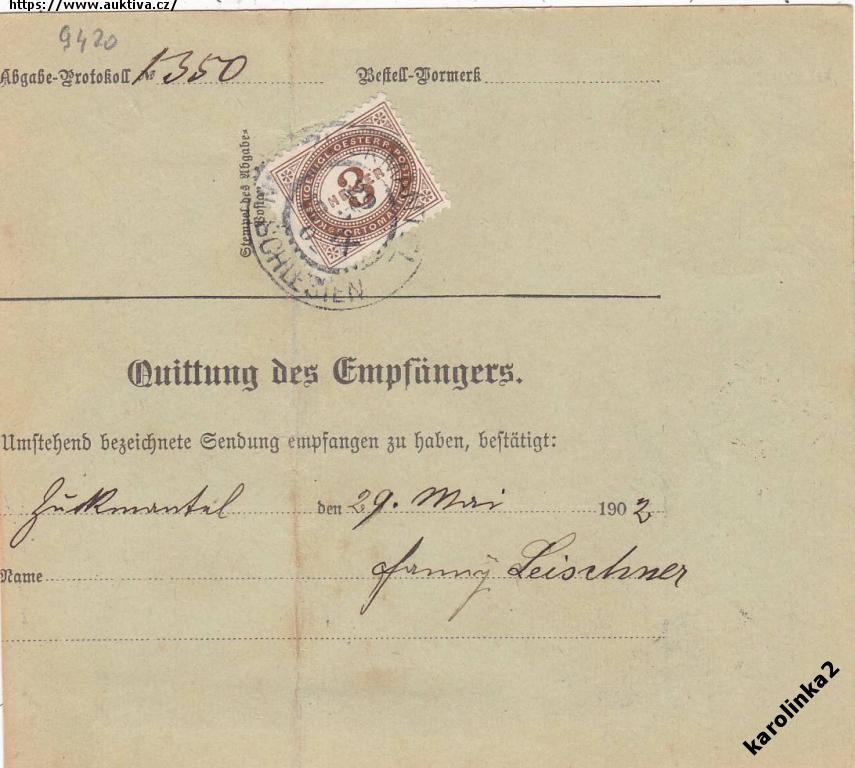 https://www.auktiva.cz/
9420
Abgabe-Protokoll № 1350 Bestell-Vormerk
Stempel des Abgabe-
Postamtes
KAIS. KOENIGL. OESTERR. POST
3
HELLER
PORTOMARKE
SCHLESIEN
Quittung des Empfängers.
Umstehend bezeichnete Sendung empfangen zu haben, bestätigt:
Zuckmantel den 29. Mai 1902
Name Fanny Leischner
karolinka2